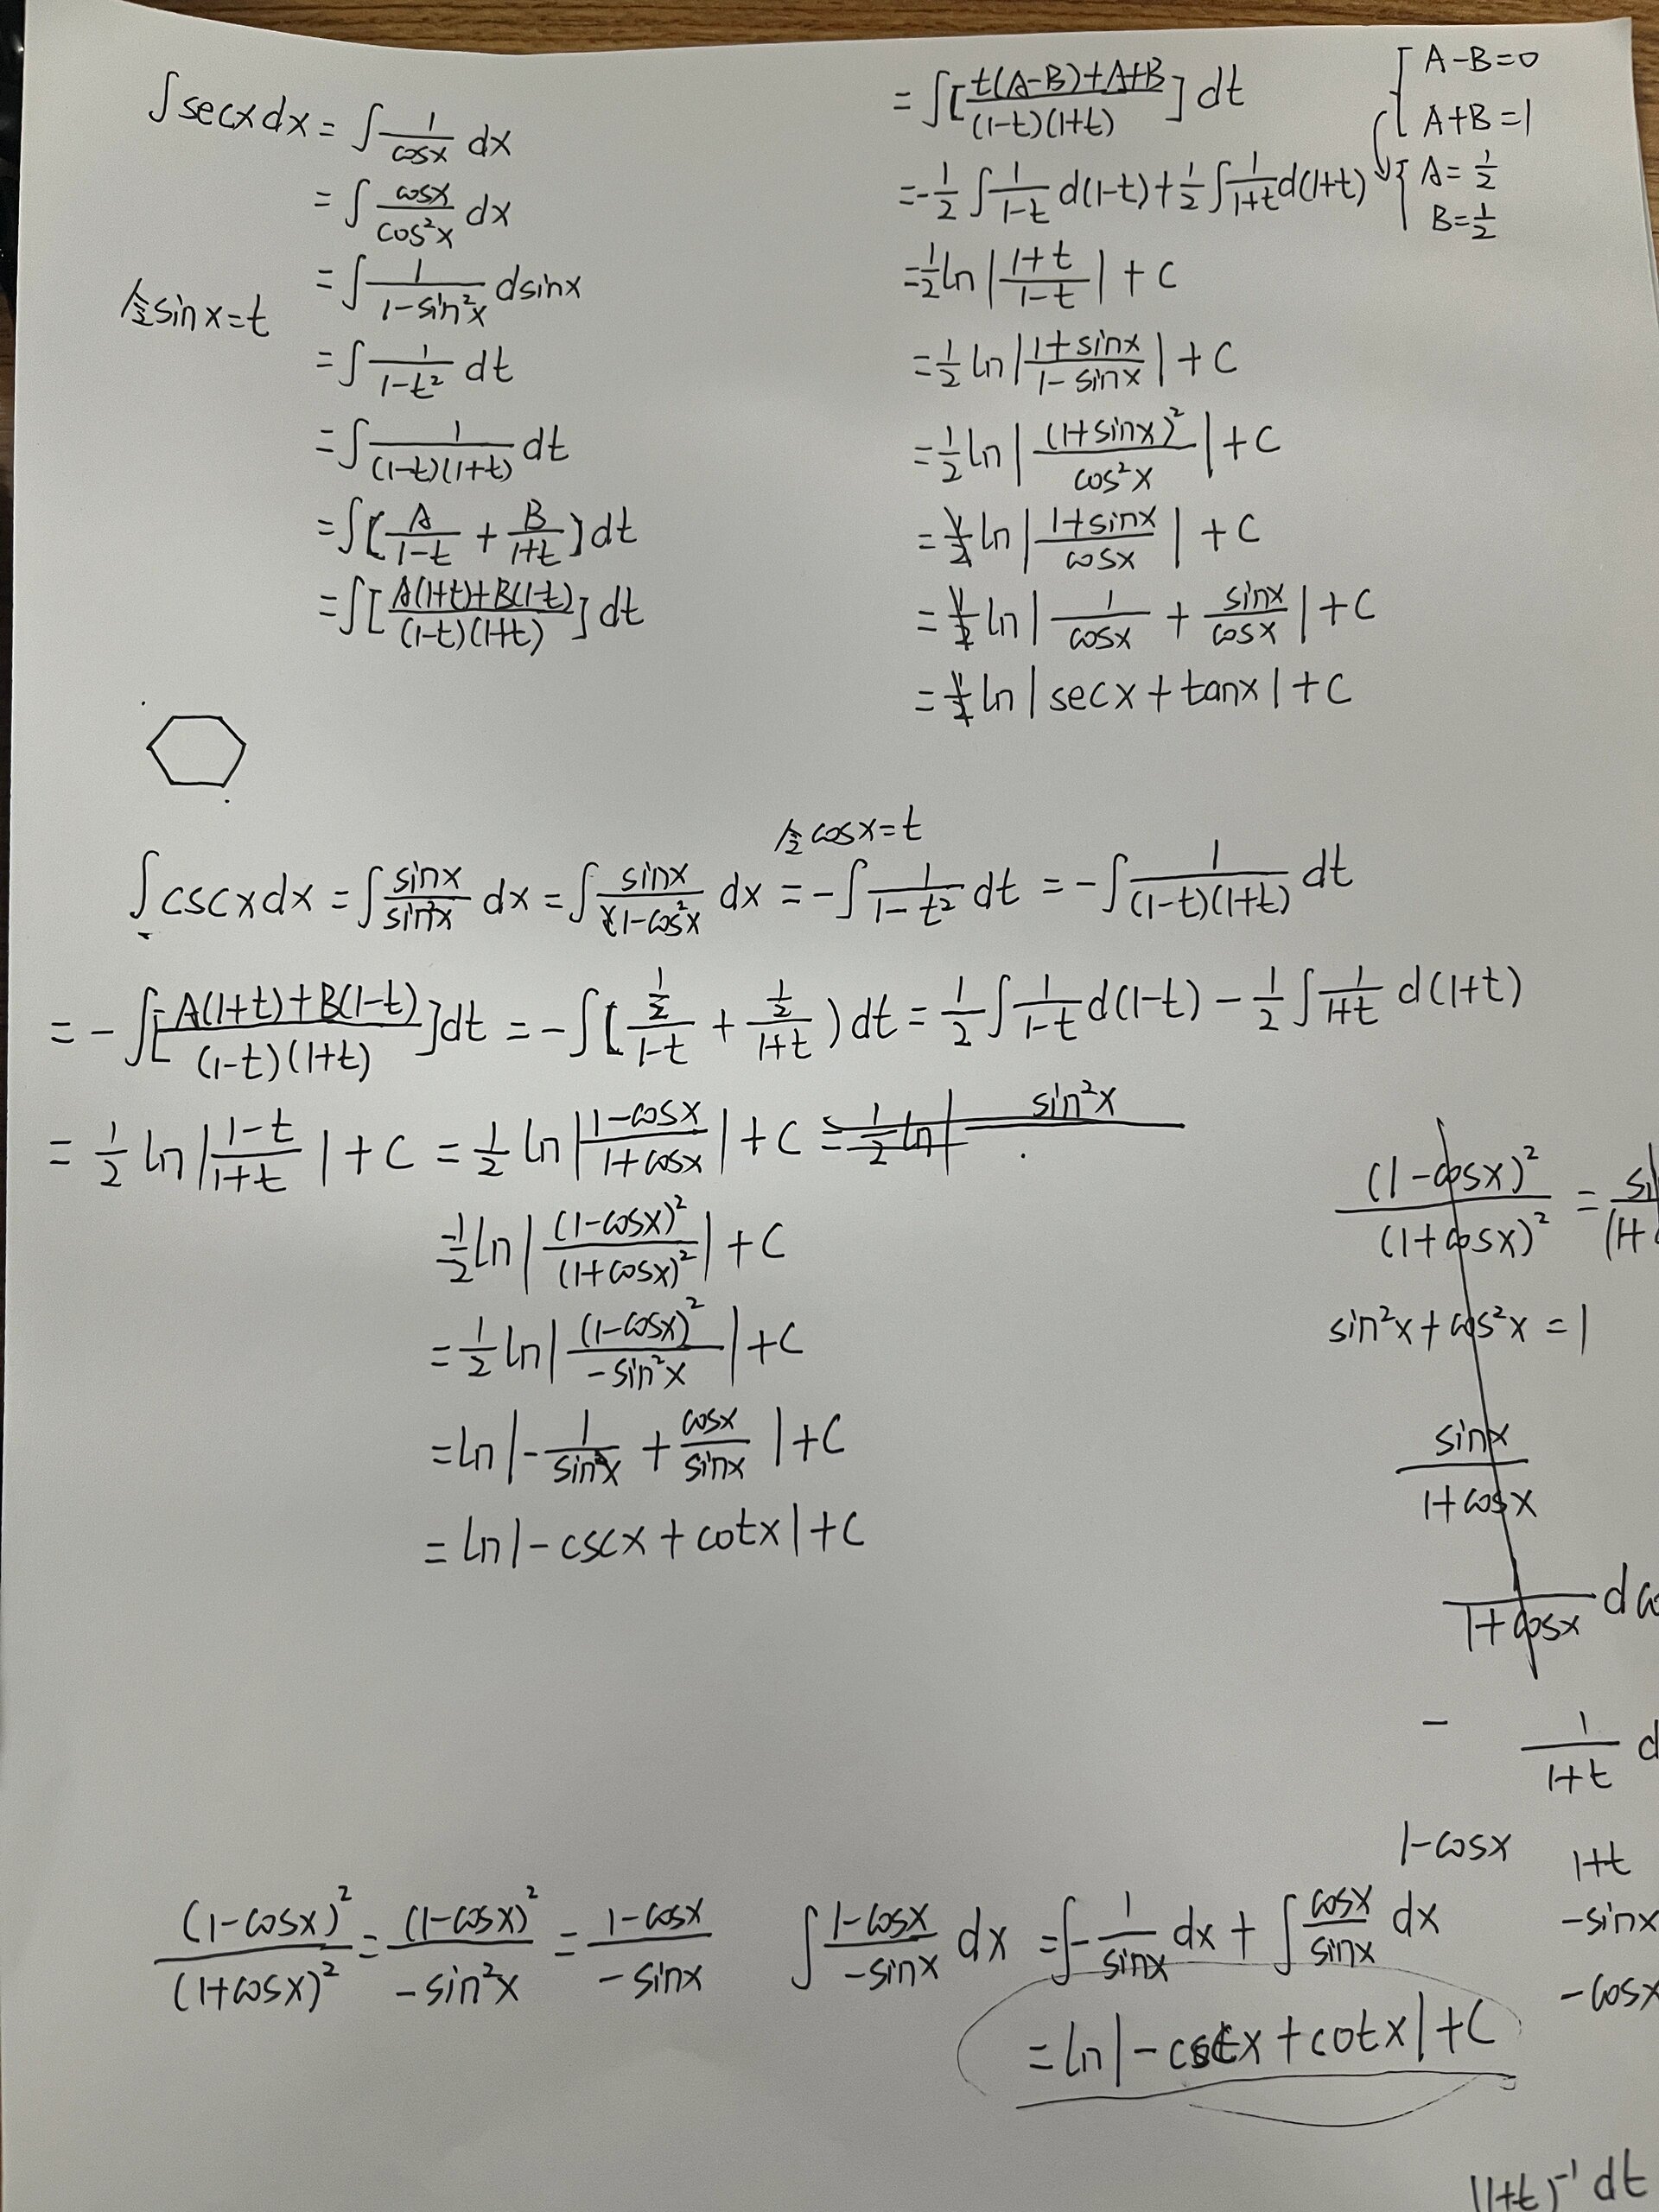 ∫secxdx = ∫ 1/cosx dx
= ∫ cosx/cos²x dx
= ∫ 1/(1-sin²x) dsinx
令sinx=t
= ∫ 1/(1-t²) dt
= ∫ 1/((1-t)(1+t)) dt
= ∫[A/(1-t) + B/(1+t)]dt
= ∫[(A(1+t)+B(1-t))/((1-t)(1+t))]dt
= ∫[(t(A-B)+A+B)/((1-t)(1+t))]dt
A-B=0
A+B=1
A=1/2
B=1/2
= -1/2 ∫ 1/(1-t) d(1-t) + 1/2 ∫ 1/(1+t) d(1+t)
= 1/2 ln|(1+t)/(1-t)| + C
= 1/2 ln|(1+sinx)/(1-sinx)| + C
= 1/2 ln|(1+sinx)²/cos²x| + C
= ln|(1+sinx)/cosx| + C
= ln|1/cosx + sinx/cosx| + C
= ln|secx + tanx| + C
令cosx=t
∫cscxdx = ∫ sinx/sin²x dx = ∫ sinx/(1-cos²x) dx = -∫ 1/(1-t²) dt = -∫ 1/((1-t)(1+t)) dt
= -∫[(A(1+t)+B(1-t))/((1-t)(1+t))]dt = -∫[(1/2)/(1-t) + (1/2)/(1+t))dt = 1/2 ∫ 1/(1-t) d(1-t) - 1/2 ∫ 1/(1+t) d(1+t)
= 1/2 ln|(1-t)/(1+t)| + C = 1/2 ln|(1-cosx)/(1+cosx)| + C = 1/2 ln| sin²x
= 1/2 ln|(1-cosx)²/(1+cosx)²| + C
= 1/2 ln|(1-cosx)²/(-sin²x)| + C
= ln|-1/sinx + cosx/sinx| + C
= ln|-cscx + cotx| + C
(1-cosx)²/(1+cosx)² =
sin²x+cos²x=1
sinx/(1+cosx)
1/(1+cosx)
- 1/(1+t) d
1-cosx
1+t
-sinx
-cosx
(1-cosx)²/(1+cosx)² = (1-cosx)²/(-sin²x) = (1-cosx)/(-sinx)
∫ (1-cosx)/(-sinx) dx = ∫ -1/sinx dx + ∫ cosx/sinx dx
= ln|-cscx + cotx| + C
(1+t)⁻¹ dt